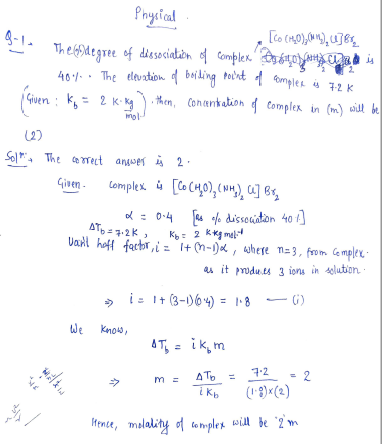 Physical
[Co(H₂O)₃(NH₃)₂Cl]Br₂
Q-1. The (%) degree of dissociation of complex is
40%. The elevation of boiling point of complex is 7.2 K
(Given : Kb = 2 K·kg/mol). then, concentration of complex in (m) will be
(2)
Solⁿ:- The correct answer is 2.
Given - complex is [Co(H₂O)₃(NH₃)₂Cl]Br₂
α = 0.4 [as % dissociation 40%]
ΔTb = 7.2 K , Kb = 2 K kg mol⁻¹
Van't hoff factor, i = 1+(n-1)α , where n=3, from complex.
as it produces 3 ions in solution.
⇒ i = 1+(3-1)(0.4) = 1.8 — (i)
We know,
ΔTb = i Kb m
⇒ m = ΔTb / i Kb = 7.2 / (1.8)×(2) = 2
Hence, molality of complex will be '2' m